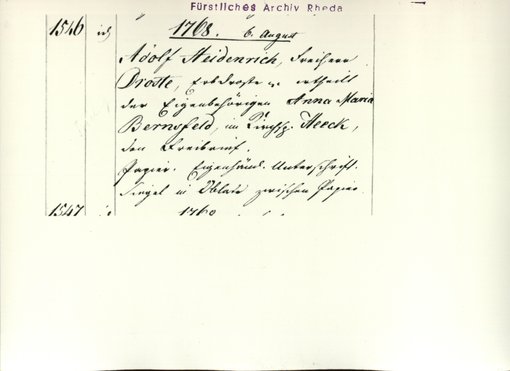 Fürstliches Archiv Rheda
1546 1768. 6. August
Adolf Heidenrich, Freiherr
Droste, Erbdroste ertheilt
der Eigenbehörigen Anna Maria
Bernsfeld, im Kirchsp. Heeck,
den Freibrief.
Papier. Eigenhänd. Unterschrift.
Siegel in Oblate zwischen Papier.
1547 1768